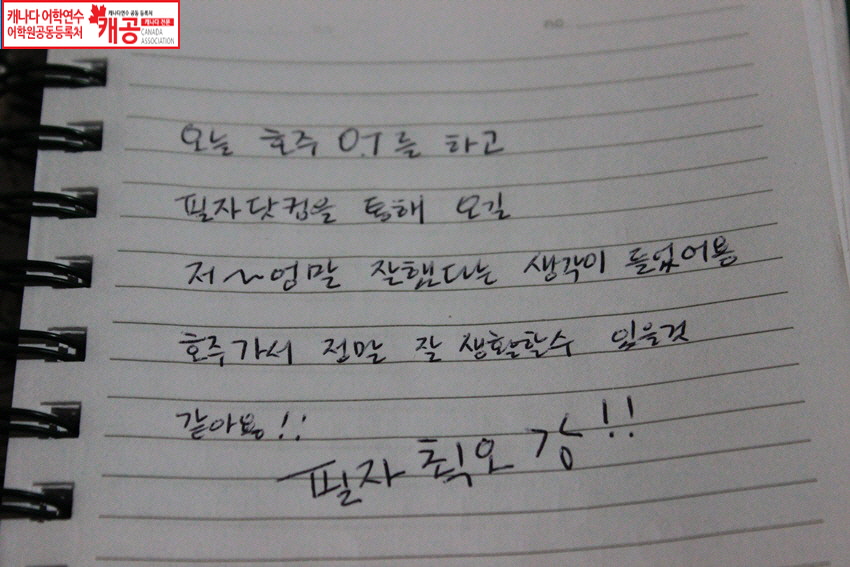 캐나다 어학연수
어학원공동등록처
캐나다연수 공동 등록처
캐공
캐나다 전문
CANADA
ASSOCIATION
no
오늘 호주 O.T를 하고
필자닷컴을 통해 오길
저~엉말 잘했다는 생각이 들었어용
호주가서 정말 잘 생활할수 있을것
같아용!!
필자 최오 강!!